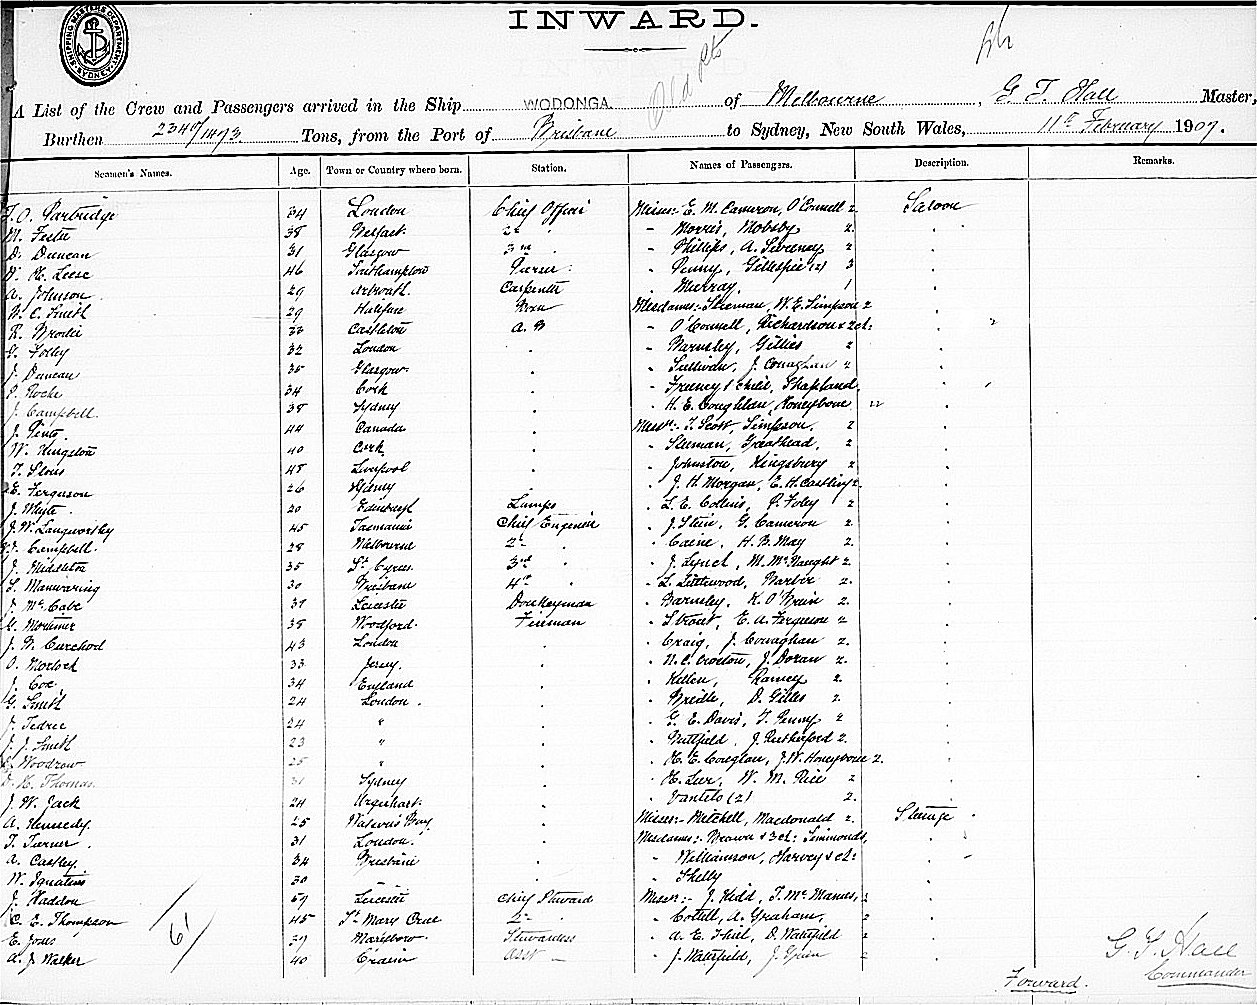 SHIPPING MASTERS DEPARTMENT SYDNEY
INWARD.
Old Pts
A List of the Crew and Passengers arrived in the Ship WODONGA of Melbourne, G. T. Hall Master,
Burthen 2340/1473 Tons, from the Port of Brisbane to Sydney, New South Wales, 11th February 1907.
Seamen's Names. Age. Town or Country where born. Station. Names of Passengers. Description. Remarks.
T. O. Partridge 34 London Chief Officer Misses:- E. M. Cameron, O'Connell 2 Saloon
M. Fester 38 Belfast 2nd " Morris, Mobsby 2
D. Duncan 31 Glasgow 3rd " Phillips, A. Sweeney 2
W. H. Leese 46 Southampton Purser " Penny, Gillespie (2) 3
A. Johnson 29 Arbroath Carpenter " Murray, 1
W. C. Smith 29 Halifax Mesdames:- Sleeman, W. E. Simpson 2
R. Brodie Castleton A. B " O'Connell, Richardson & 2 ch:
G. Foley 32 London " Barnsley, Gillies 2
J. Duncan 35 Glasgow " Sullivan, J. Conaghan 2
P. Roche 34 Cork " Freeney & child, Shapland
J. Campbell 38 Sydney " H. E. Coughlan, Honeybone
J. Pinto 44 Canada Messrs:- T. Scott, Simpson, 2
W. Kingston 40 Cork " Sleeman, Greathead, 2
T. 48 Liverpool " Johnston, Kingsbury 2
E. Ferguson 26 Sydney " J. H. Morgan, E. H. Castling 2
J. Whyte 20 Edinburgh Lamps " L. E. Collins, P. Foley 2
J. W. Langworthy 45 Tasmania Chief Engineer " J. Stein, G. Cameron 2
J. Campbell 28 Melbourne 2nd " Caine, H. B. May 2
J. Middleton 35 St. Cyrus 3rd " J. Lynch, M. McNaught 2
S. Manwaring 30 Brisbane 4th " L. Littlewood, Barber 2
J. McCabe 37 Leicester Donkeyman " Barnsley, K. O'Brien 2
G. Mortimer 38 Woodford Fireman " Strout, E. A. Ferguson 2
J. B. Curchod 43 London " Craig, J. Conaghan 2
O. Norlock 33 Jersey " N. C. Croston, J. Doran 2
J. Cox 34 England " Kellen, Ramsey 2
G. Smith 24 London " Breidle, D. Gilles 2
J. Tedree 24 " " G. E. Davis, T. Penny 2
J. J. Smith 23 " " Nuttfield, J. Rutherford 2
Woodrow 25 " " H. E. Coughlan, J. W. Honeybone 2
H. Thomas 31 Sydney " H. Lee, W. M. Rice 2
J. W. Jack 24 Urquhart " Vantelo (2) 2
A. Kennedy 25 Watson's Bay Misses:- Mitchell, Macdonald 2 Steerage
T. Turner 31 London Mesdames:- Brown & 3 ch: Simmonds,
A. Castley 34 Brisbane " Williamson, Harvey & ch:
W. Ignatius 30 " " Shelly
J. Haddon 59 Leicester Chief Steward Messrs:- J. Kidd, T. McManus, 2
C. E. Thompson 45 St. Mary Cray 2nd " Cottell, A. Graham, 2
E. Jones 39 Maryboro Stewardess " A. E. Thiel, D. Waterfield 2
A. J. Walker 40 Asst " J. Waterfield, J. 2
61
G. T. Hall
Commander
Forward.